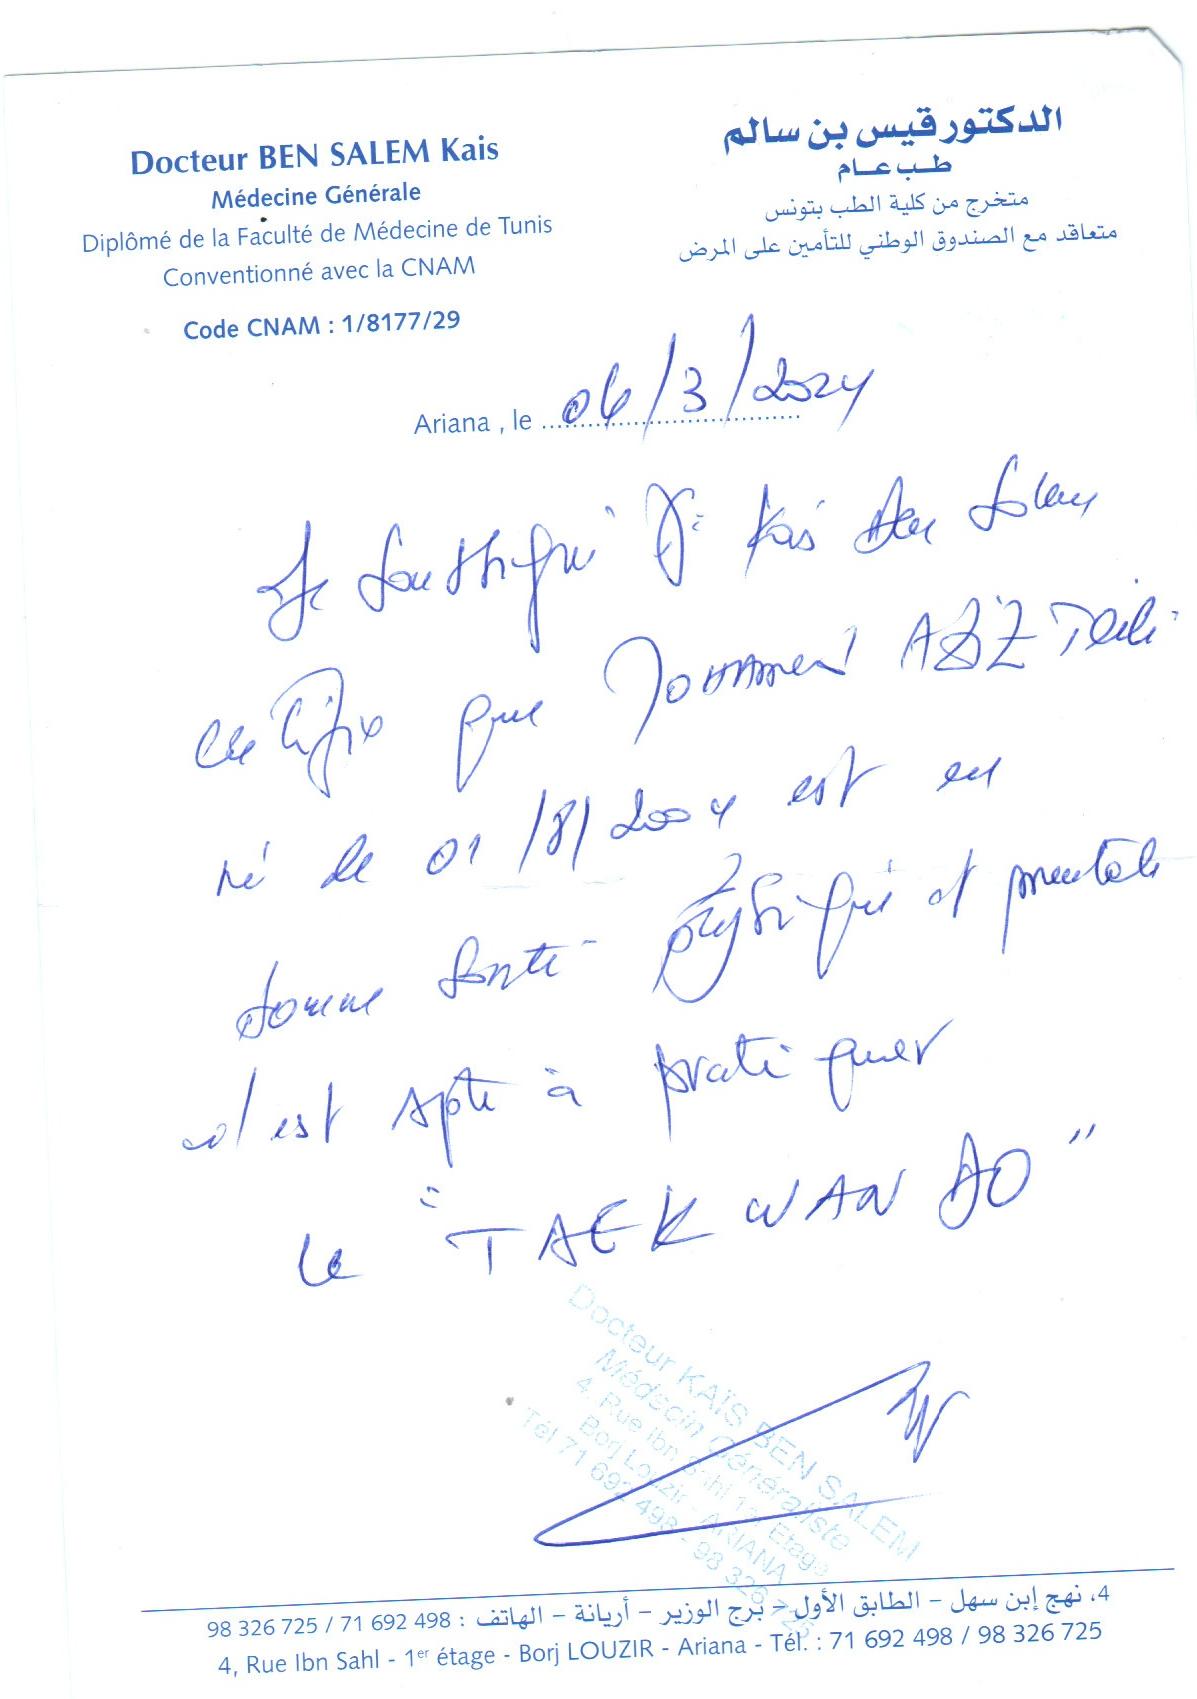 Docteur BEN SALEM Kais
Médecine Générale
Diplômé de la Faculté de Médecine de Tunis
Conventionné avec la CNAM
Code CNAM : 1/8177/29
الدكتور قيس بن سالم
طب عام
متخرج من كلية الطب بتونس
متعاقد مع الصندوق الوطني للتأمين على المرض
Ariana , le 06/3/2024
Je soussigné Dr Kais Ben Salem
certifie que Mohamed AZIZ
né le 01/8/2004 est en
bonne santé physique et mentale
il est apte à pratiquer
le "TAEKWANDO"
Docteur KAÏS BEN SALEM
Médecin Généraliste
4, Rue Ibn Sahl 1er Etage
Borj Louzir - ARIANA
Tél 71 692 498 - 98 326 725
4، نهج إبن سهل - الطابق الأول - برج الوزير - أريانة - الهاتف : 98 326 725 / 71 692 498
4, Rue Ibn Sahl - 1er étage - Borj LOUZIR - Ariana - Tél. : 71 692 498 / 98 326 725